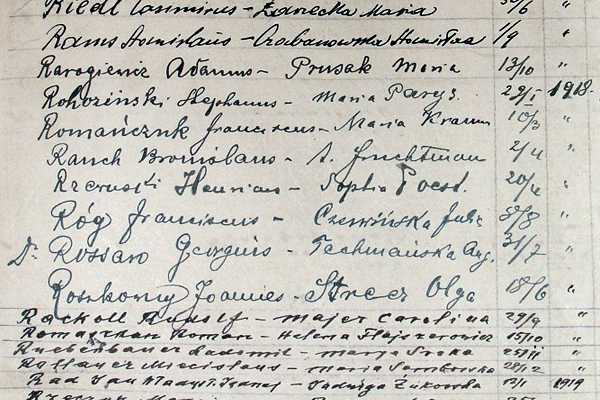 Riedl Casimirus - Zarzecka Maria 30/6 "
Rams Stanislaus - Czabanowska Stanisława 1/9 "
Rarogiewicz Adamus - Prusak Maria 13/10 "
Rohoziński Stephanus - Maria Parys. 29/I 1918.
Romańczuk Franciscus - Maria Kramm 10/3 "
Rauch Bronislaus - A. Fruchtman 2/4 "
Henricus - Sophia 20/4 "
Róg Franciscus - Czerwińska Julia 8/8 "
Dr. Russaro Georgius - Techmańska Aug. 31/7 "
Roszkowy Joannes - Strecz Olga 18/6 "
Rackoll Rudolf - Majer Carolina 29/9 "
Romaszkan Roman - Helena 15/10 "
Ruebenbauer Radomil - Maria Sroka 25/11 "
Miecislaus - Maria 28/12 "
Rad Jan - Jadwiga Żukowska 12/1 1919